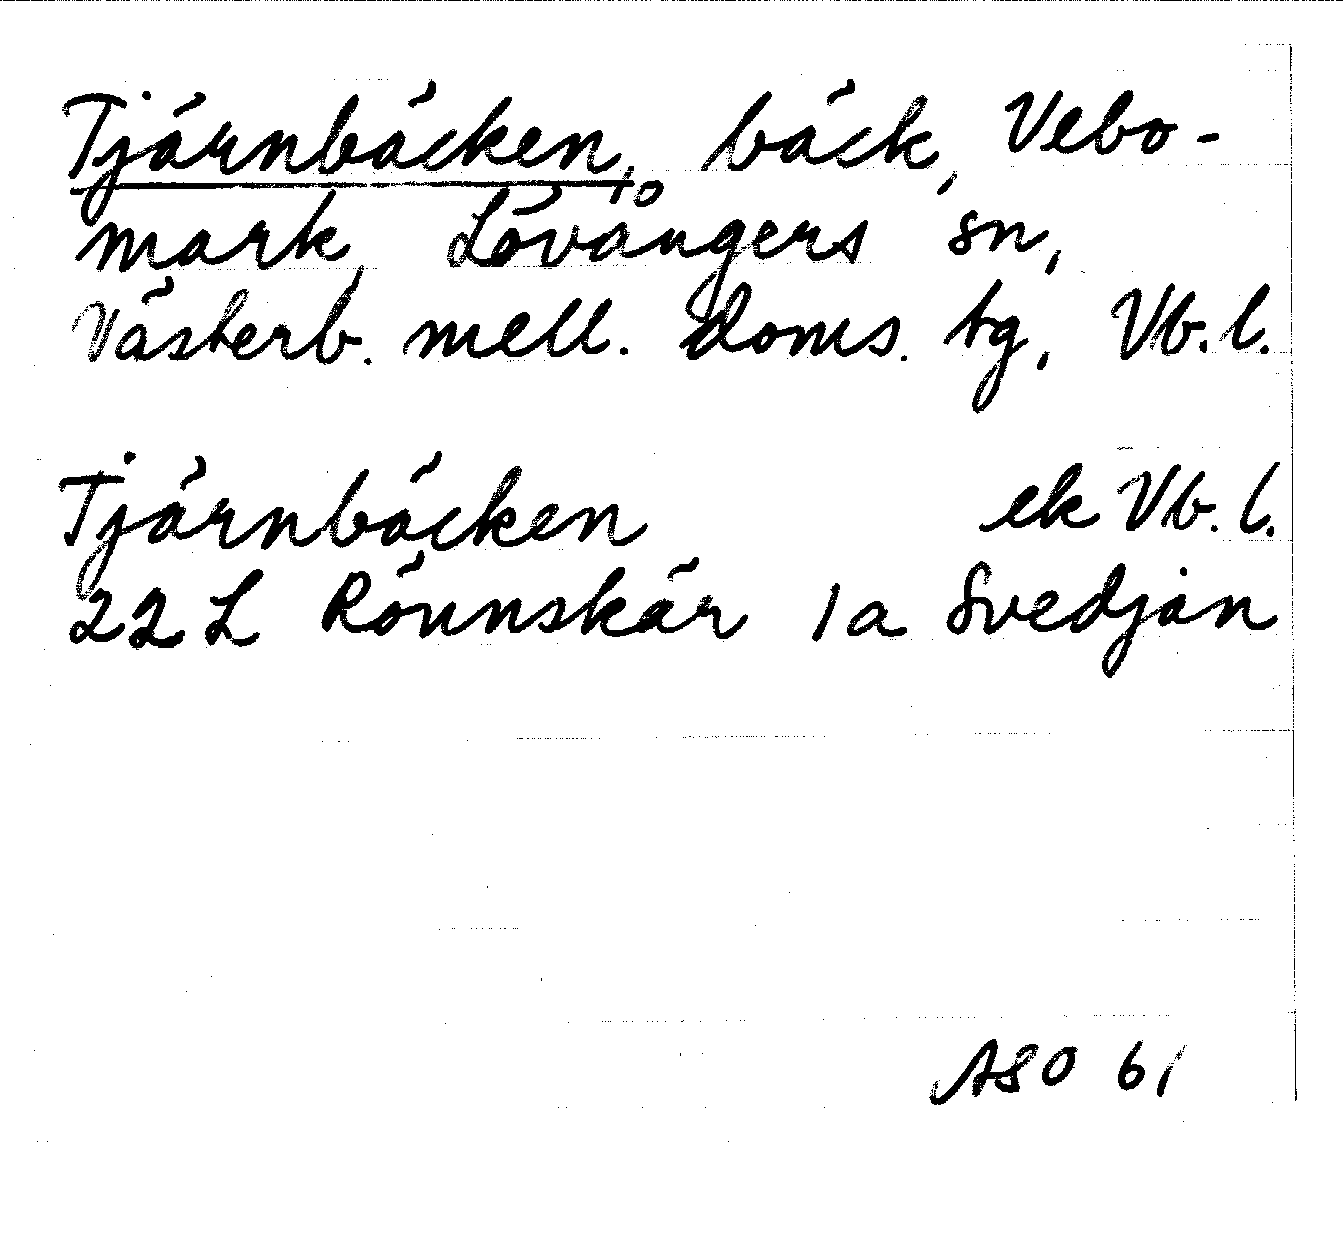 Tjärnbäcken, bäck, Vebo-
mark, Lövångers sn,
Västerb. mell. doms. tg, Vb. l.
Tjärnbäcken ek Vb. l.
22 L Rönnskär 1a Svedjan
ASO 61